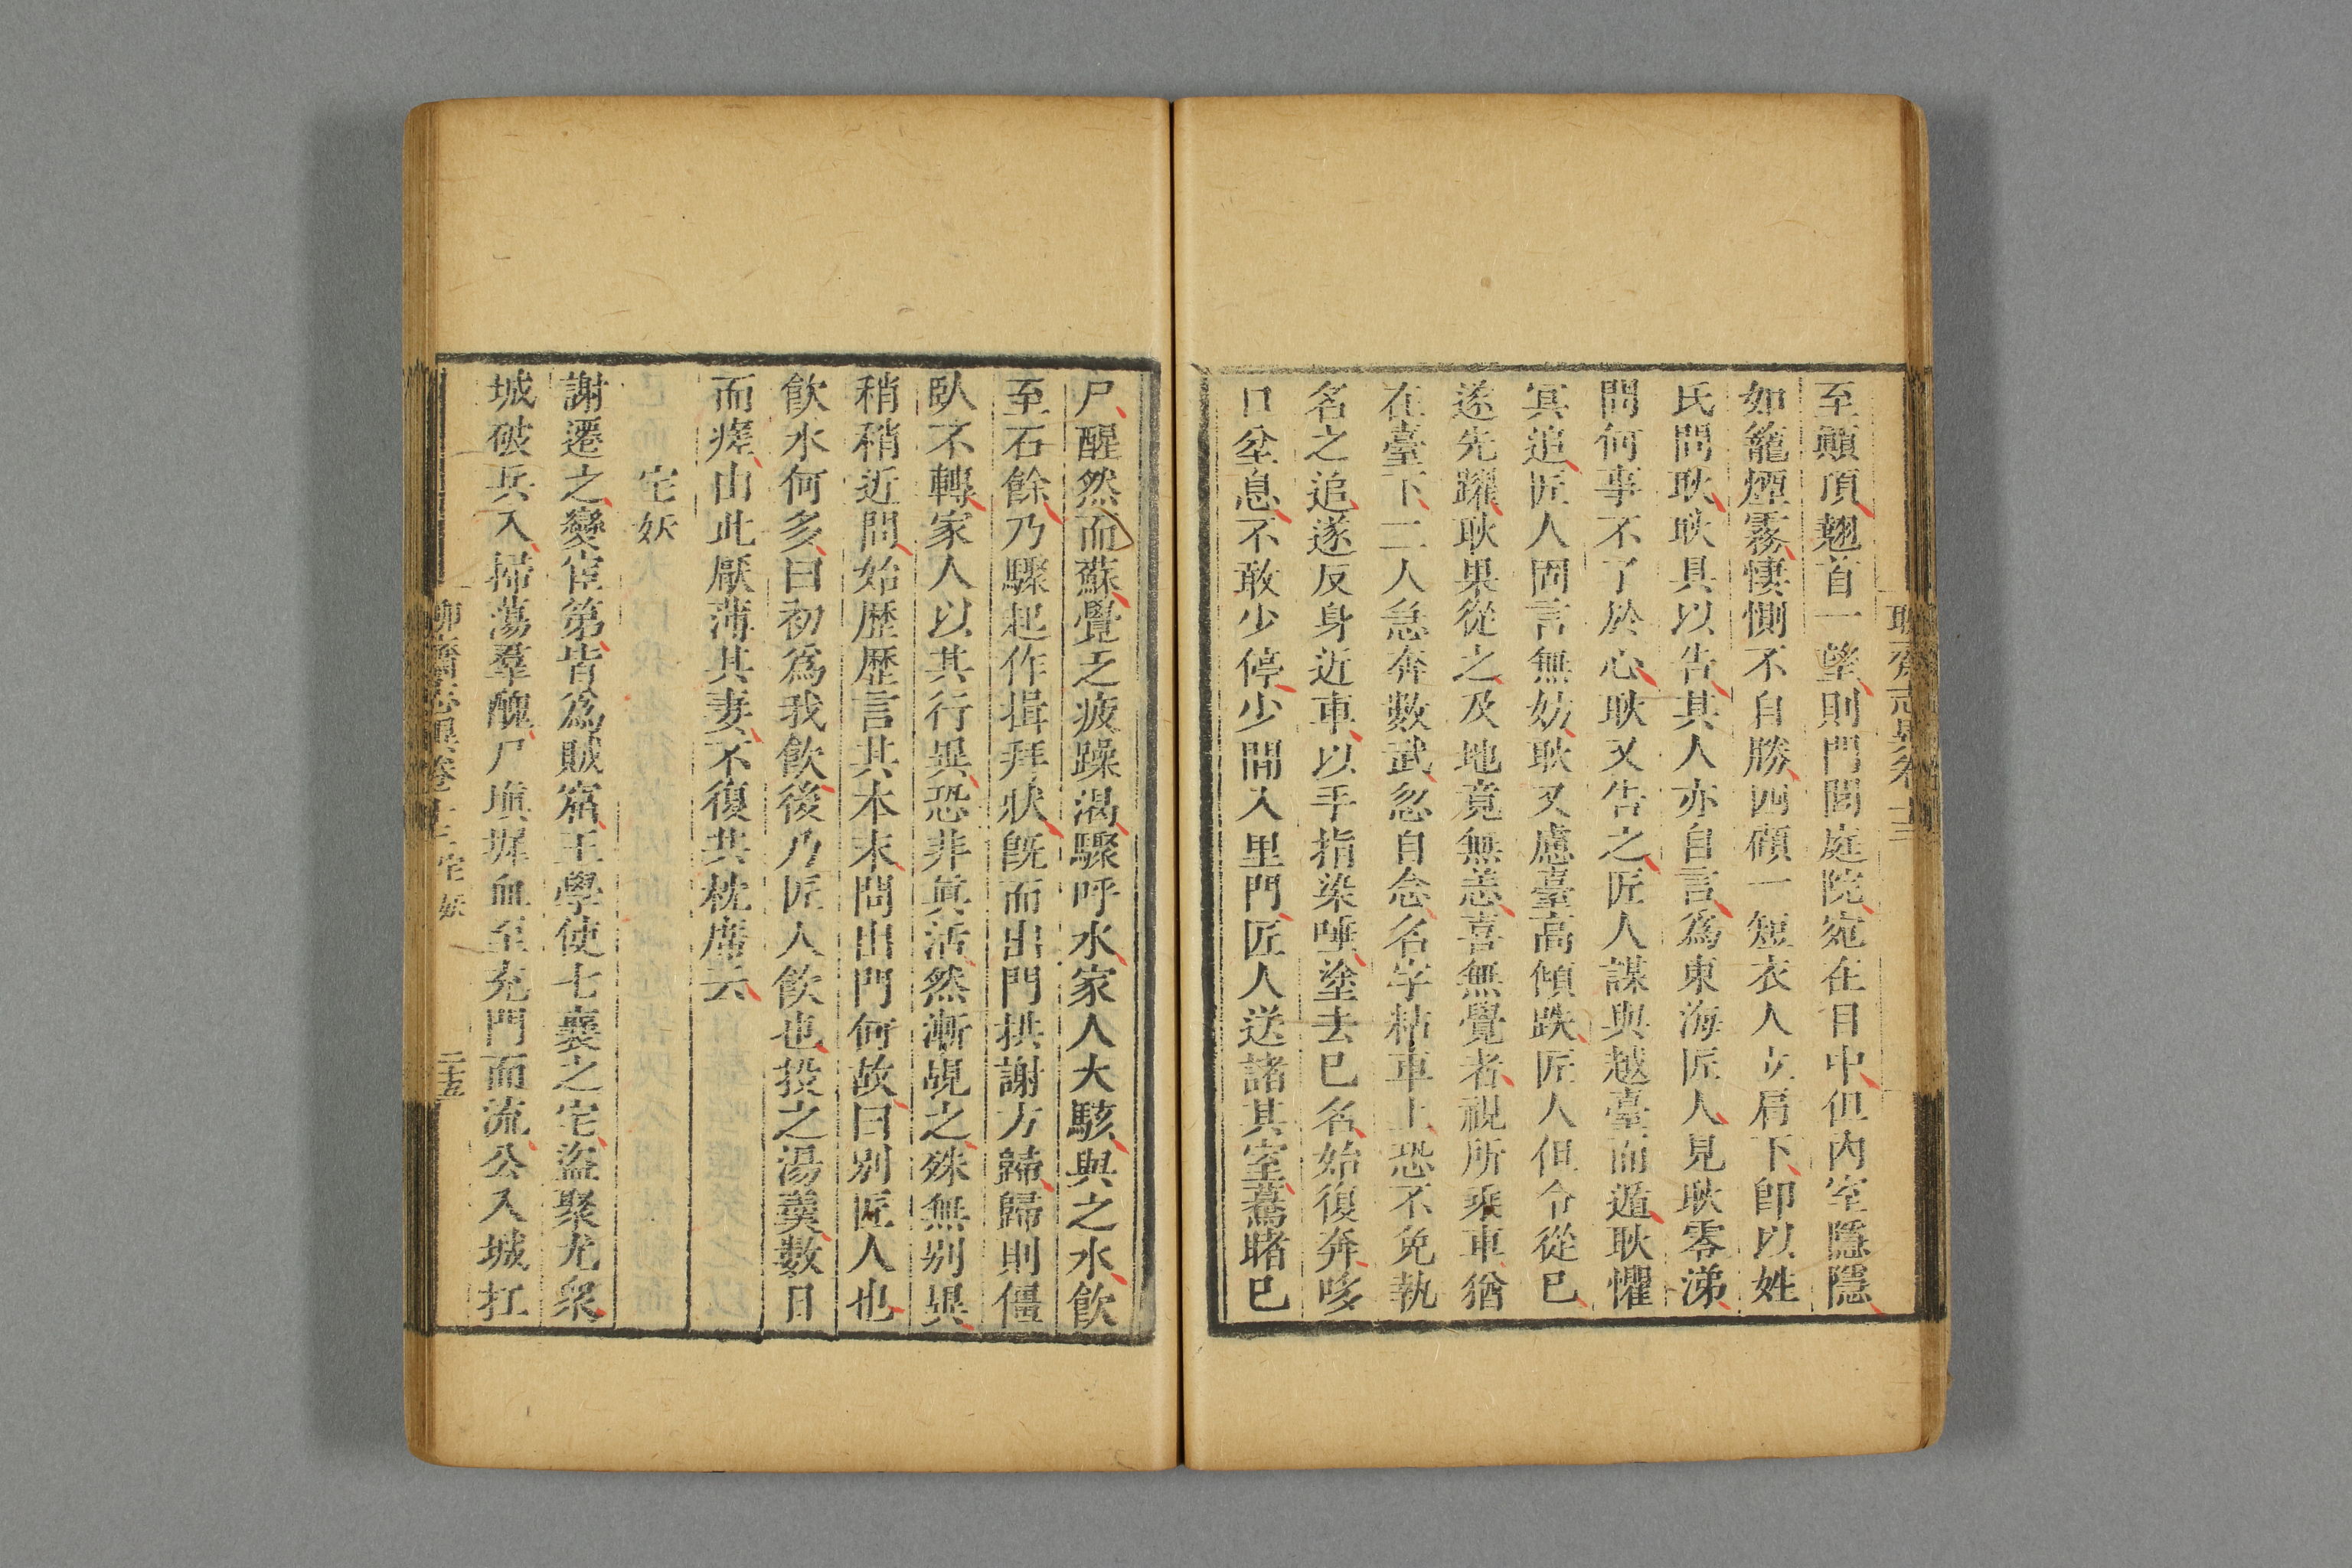 聊齋志異卷十三
至顛頂翹首一望則門閭庭院宛在目中但內室隱隱
如籠煙霧悽惻不自勝四顧一短衣人立肩下卽以姓
氏問耿耿具以告其人亦自言爲東海匠人見耿零涕
問何事不了於心耿又告之匠人謀與越臺而遁耿懼
冥追匠人固言無妨耿又慮臺高傾跌匠人但令從已
遂先躍耿果從之及地竟無恙喜無覺者視所乘車猶
在臺下二人急奔數武忽自念名字粘車上恐不免執
名之追遂反身近車以手指染唾塗去已名始復奔哆
口坌息不敢少停少間入里門匠人送諸其室驀睹已
尸醒然而蘇覺乏疲躁渴驟呼水家人大駭與之水飲
至石餘乃驟起作揖拜狀旣而出門拱謝方歸歸則僵
臥不轉家人以其行異恐非眞活然漸覘之殊無別異
稍稍近問始歷歷言其本末問出門何故曰別匠人也
飲水何多曰初爲我飲後乃匠人飲也投之湯羹數日
而瘥由此厭薄其妻不復共枕席云
宅妖
謝遷之變宦第皆爲賊窟王學使七襄之宅盜聚尤衆
城破兵入掃蕩羣醜尸塡墀血至充門而流公入城扛
聊齋志異卷十三 宅妖 二十五